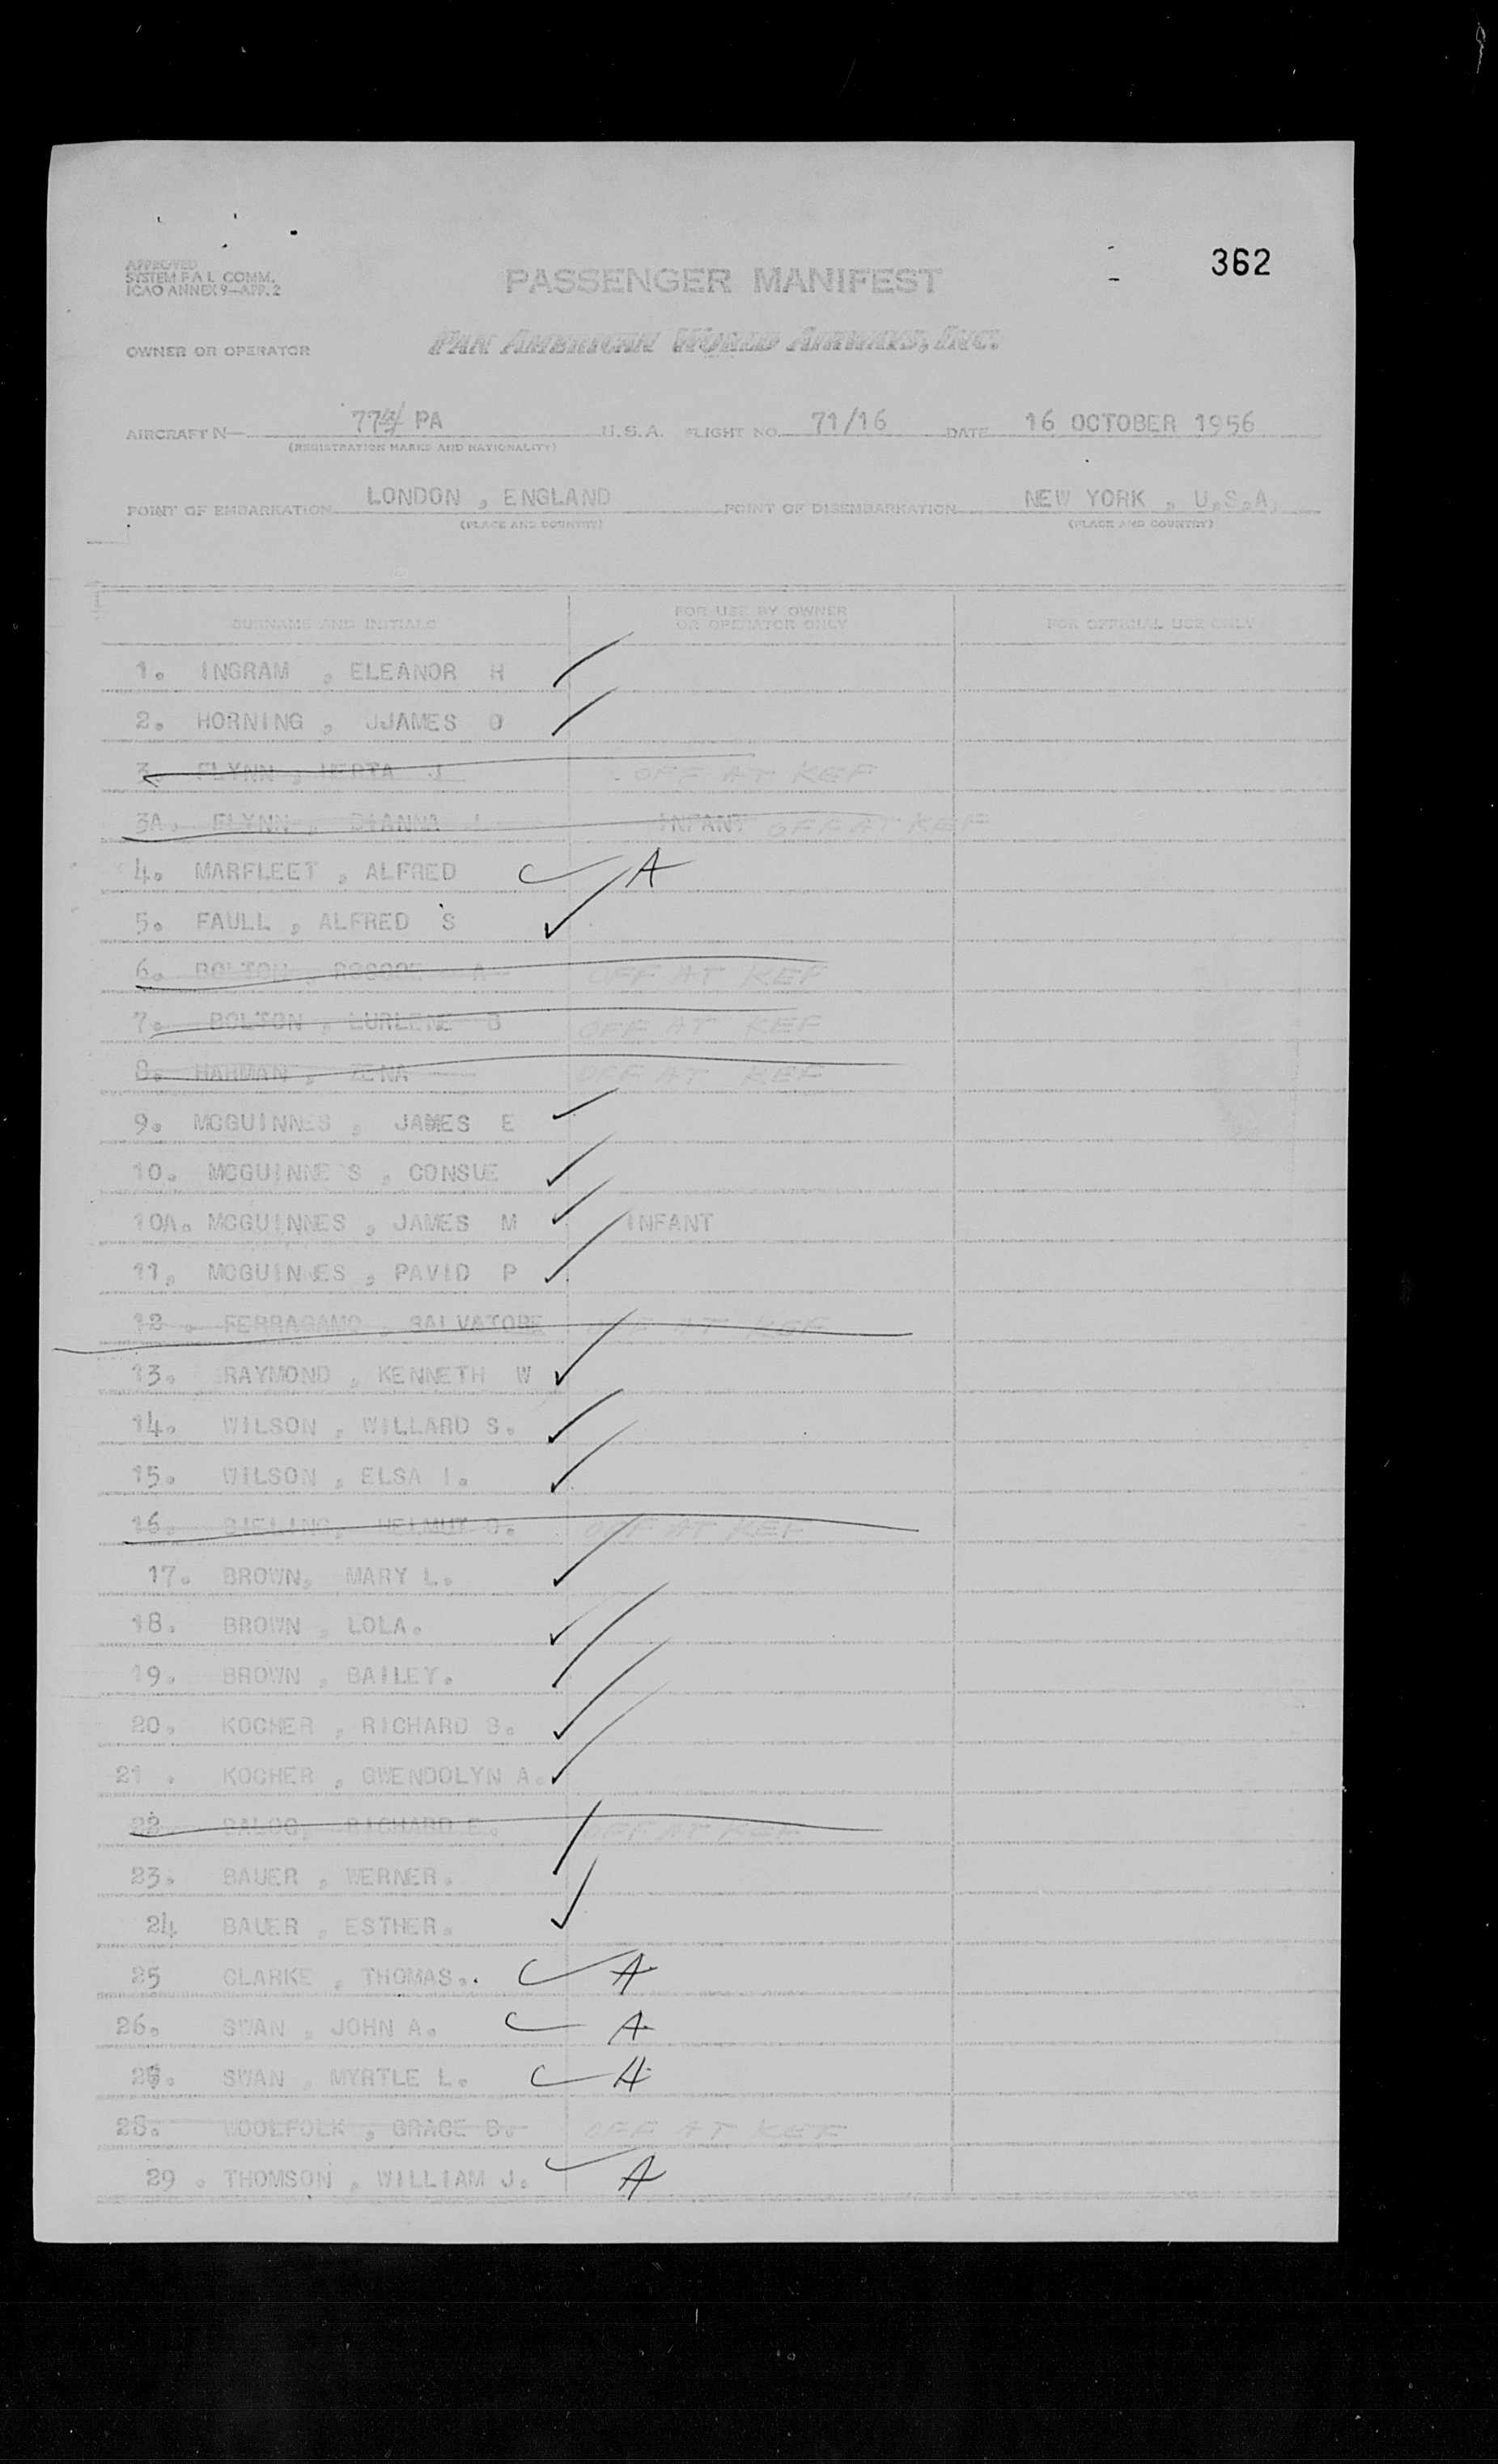 362
APPROVED
SYSTEM F.A.L. COMM.
ICAO ANNEX 9—APP. 2
PASSENGER MANIFEST
OWNER OR OPERATOR PAN AMERICAN WORLD AIRWAYS, INC.
AIRCRAFT N— PA U.S.A. FLIGHT NO. 71/16 DATE 16 OCTOBER 1956
(REGISTRATION MARKS AND NATIONALITY)
POINT OF EMBARKATION LONDON , ENGLAND POINT OF DISEMBARKATION NEW YORK , U.S.A.
(PLACE AND COUNTRY) (PLACE AND COUNTRY)
SURNAME AND INITIALS FOR USE BY OWNER OR OPERATOR ONLY FOR OFFICIAL USE ONLY
1. INGRAM , ELEANOR H
2. HORNING , JJAMES O
3. FLYNN , HERTA J OFF AT KEF
3A. FLYNN , DIANNA J. INFANT OFF AT KEF
4. MARFLEET , ALFRED A
5. FAULL , ALFRED S
6. BOLTON , ROSCOE A OFF AT KEF
7. BOLTON , LURLENE B OFF AT KEF
8. HARMAN , ZENA OFF AT KEF
9. MCGUINNES , JAMES E
10. MCGUINNE S , CONSUE
10A. MCGUINNES , JAMES M INFANT
11. MCGUINNES , PAVID P
12 . FERRAGAMO , SALVATORE OFF AT KEF
13. RAYMOND , KENNETH W
14. WILSON , WILLARD S.
15. WILSON , ELSA I.
16. HELMUT OFF AT KEF
17. BROWN, MARY L.
18. BROWN , LOLA.
19. BROWN , BAILEY.
20. KOCHER , RICHARD S.
21 . KOCHER , GWENDOLYN A.
22. RICHARD E. OFF AT KEF
23. BAUER , WERNER.
24 BAUER , ESTHER.
25 CLARKE , THOMAS.. A
26. SWAN , JOHN A. A
27. SWAN , MYRTLE L. A
28. WOOLFOLK , GRACE B. OFF AT KEF
29 . THOMSON , WILLIAM J. A